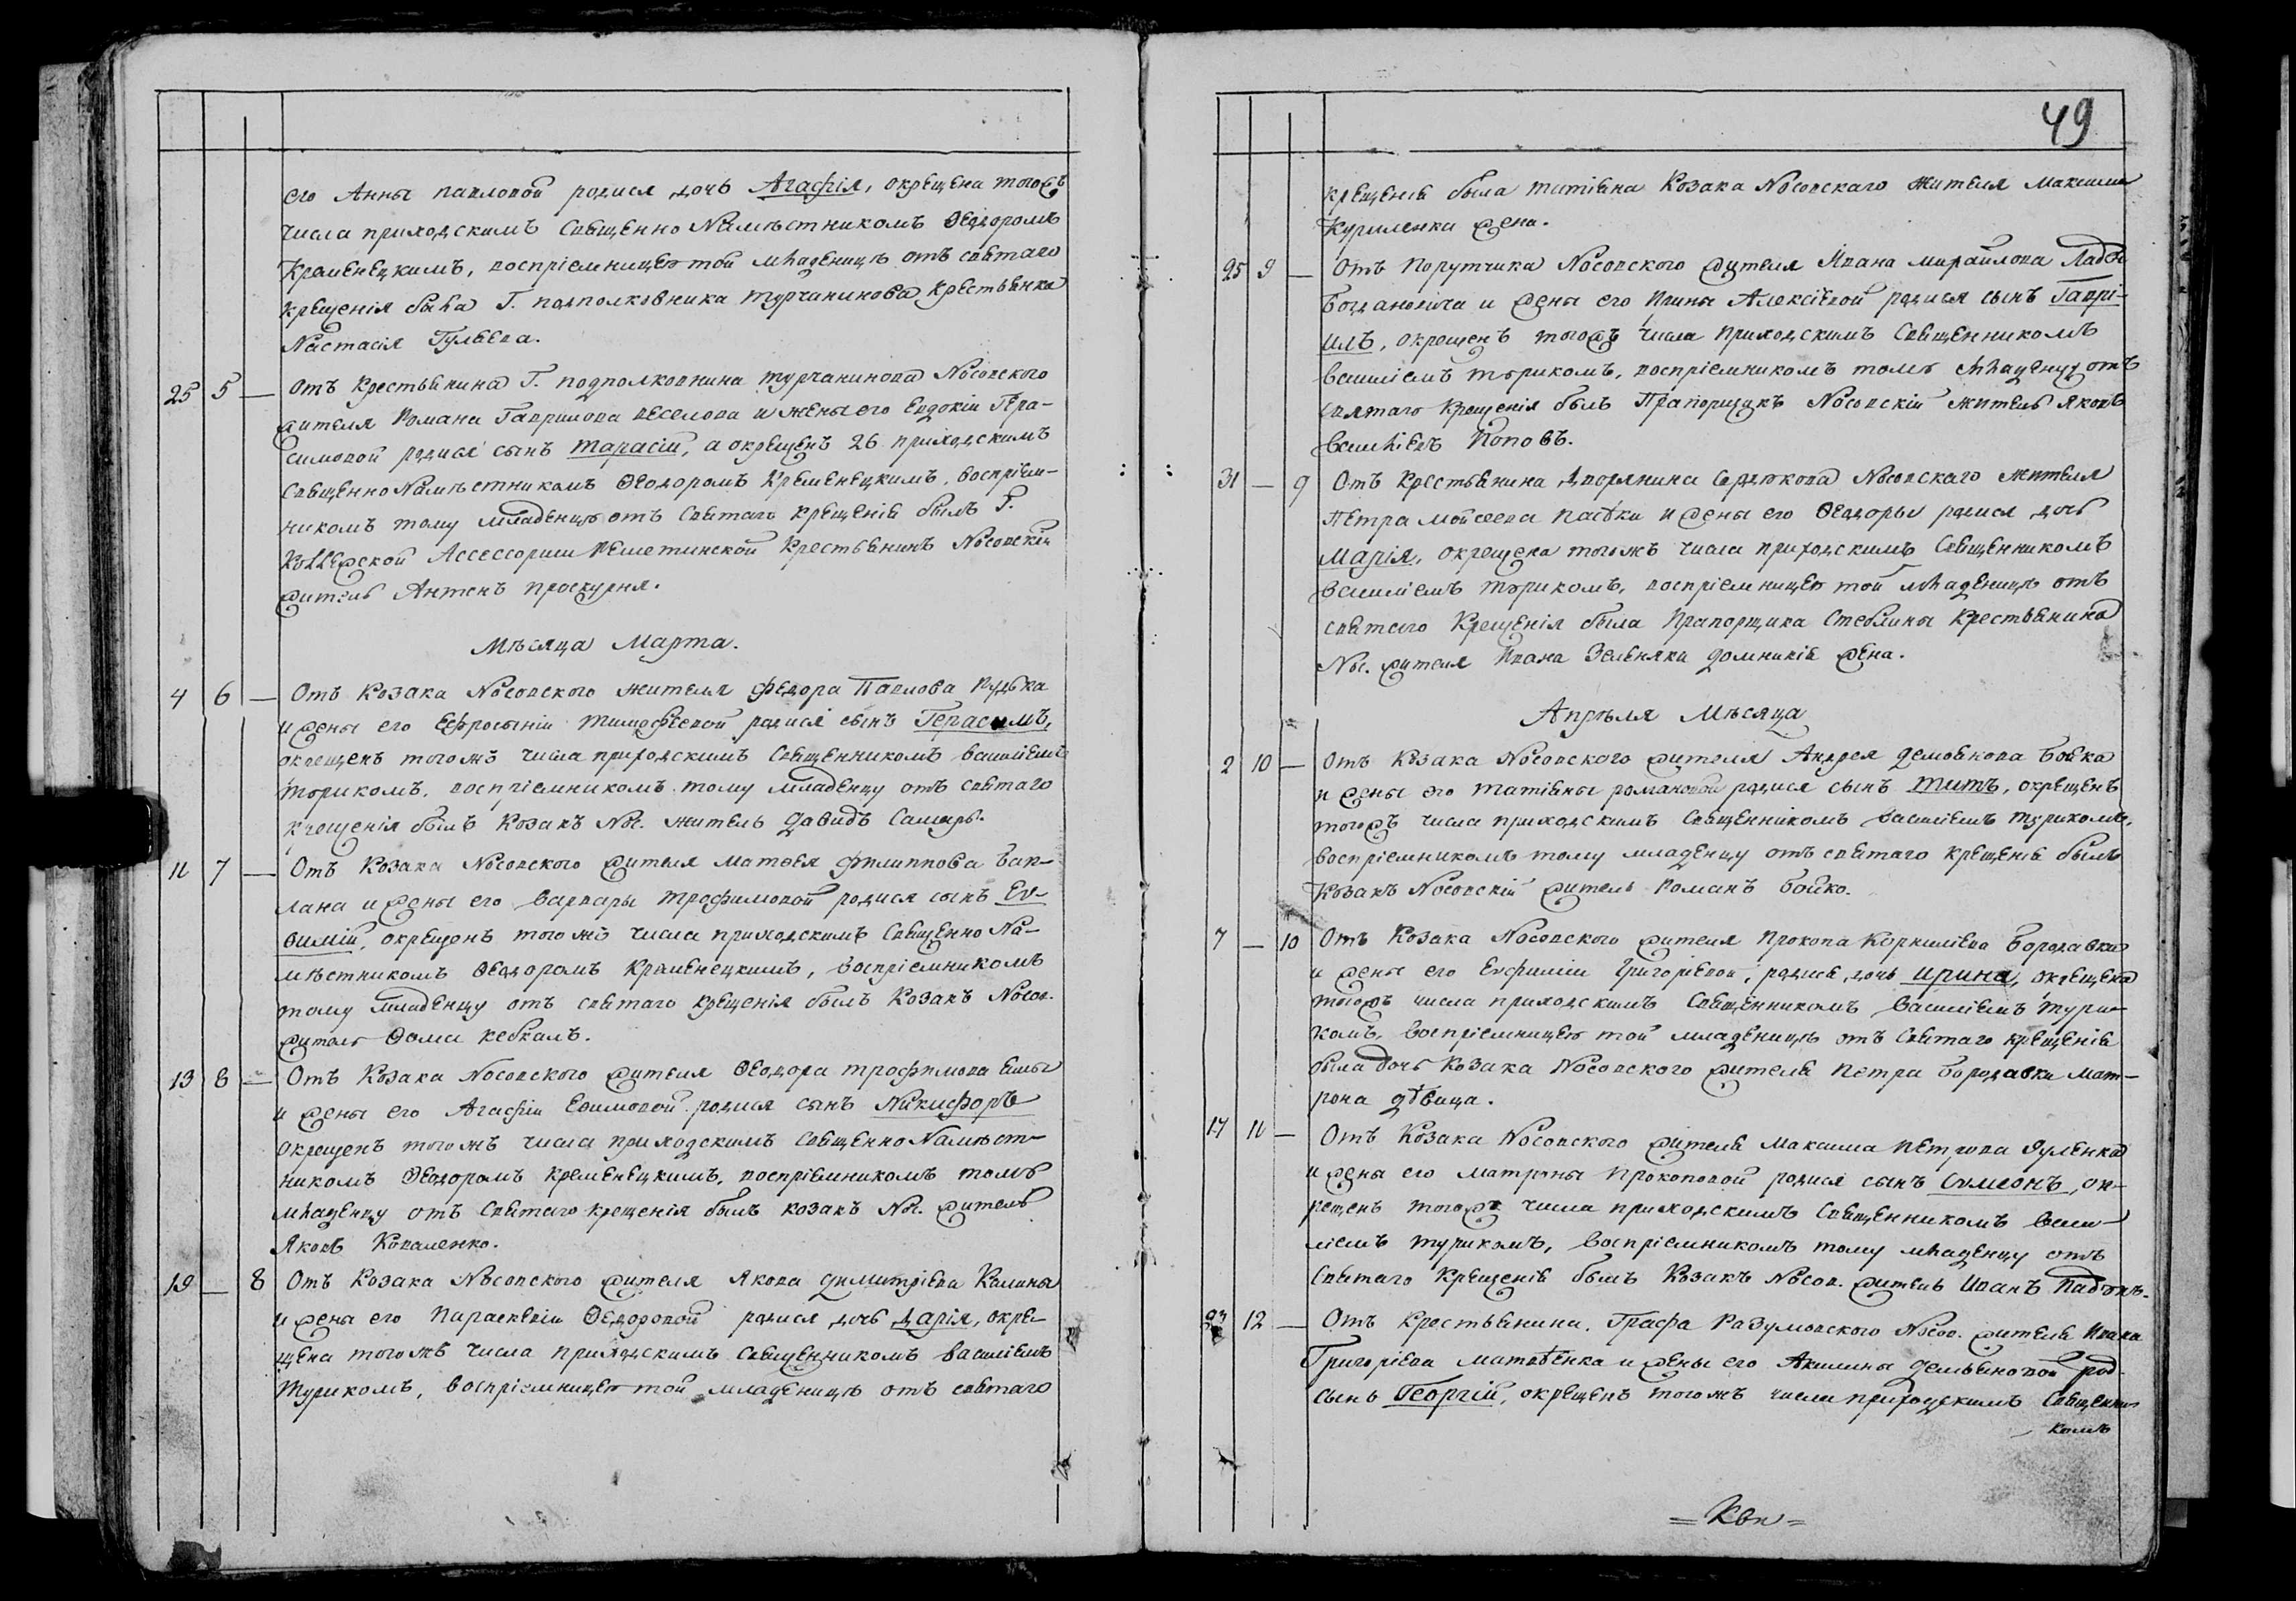 его Анны Павловой родися дочь Агафія, окрещена тогожъ
числа приходскимъ Священно Намѣстникомъ Ѳеодоромъ
Кременецкимъ, воспріемницею той младеницѣ отъ святаго
крещенія была Г. подполковника Турчанинова крестьянка
Настасія Гульева.
25 5 — Отъ Крестьянина Г. подполковника Турчанинова Носовского
жителя Романа Гаврилова Веселова и жены его Евдокіи Гера-
симовой родися сынъ Тарасій, а окрещенъ 26 приходскимъ
Священно Намѣстникомъ Ѳеодоромъ Кременецкимъ, воспріем-
никомъ тому младенцу отъ Святаго крещенія былъ Г.
Коллежской Ассессорши Крестьянинъ Носовскій
житель Антонъ Проскурня.
Мѣсяца Марта.
4 6 — Отъ Козака Носовского жителя Федора Павлова Рудька
и жены его Ефросыніи Тимофѣевой родися сынъ Герасимъ,
окрещенъ тогожъ числа приходскимъ Священникомъ Василіемъ
Турикомъ, воспріемникомъ тому младенцу отъ святаго
крещенія былъ Козакъ Нос. житель Давидъ Самарь.
11 7 — Отъ Козака Носовского жителя Матѳея Филиппова Бак-
лана и жены его Варвары Трофимовой родися сынъ Еѵ-
ѳимій, окрещенъ тогожъ числа приходскимъ Священно На-
мѣстникомъ Ѳеодоромъ Кременецкимъ, воспріемникомъ
тому младенцу отъ святаго крещенія былъ Козакъ Носов.
житель Ѳома Кебкалъ.
13 8 — Отъ Козака Носовского жителя Ѳеодора Трофимова
и жены его Агафіи Евимовой родися сынъ Никифоръ
окрещенъ тогожъ числа приходскимъ Священно Намѣст-
никомъ Ѳеодоромъ Кременецкимъ, воспріемникомъ тому
младенцу отъ Святаго крещенія былъ козакъ Нос. житель
Яковъ Коваленко.
19 — 8 Отъ Козака Носовского жителя Якова Димитріева Калины
и жены его Параскевіи Ѳеодоровой родися дочь Дарія, окре-
щена тогожъ числа приходскимъ Священникомъ Василіемъ
Турикомъ, воспріемницею той младеницѣ отъ святаго
49
крещенія была Татіяна Козака Носовскаго жителя Максима
Куриленка жена.
25 9 — Отъ Порутчика Носовского жителя Ивана Михайлова
Богдановича и жены его Алексіевой родися сынъ Гаврі-
илъ, окрещенъ тогожъ числа приходскимъ Священникомъ
Василіемъ Турикомъ, воспріемникомъ тому младенцу отъ
святаго крещенія былъ Прапорщикъ Носовскій житель Яковъ
Васильевъ Поповъ.
31 — 9 Отъ Крестьянина Дворянина Сердюкова Носовскаго жителя
Петра Мойсеева Пасѣки и жены его Ѳеодоры родися дочь
Марія, окрещена тогожъ числа приходскимъ Священникомъ
Василіемъ Турикомъ, воспріемницею той младеницѣ отъ
святаго Крещенія была Прапорщика Стеблина Крестьянина
Нос. жителя Ивана Зеленяки Домникія жена.
Апрѣля Мѣсяца
2 10 — Отъ Козака Носовского жителя Андрея Демьянова Бойка
и жены его Татіяны Романовой родися сынъ Титъ, окрещенъ
тогожъ числа приходскимъ Священникомъ Василіемъ Турикомъ,
воспріемникомъ тому младенцу отъ святаго крещенія былъ
Козакъ Носовскій житель Романъ Бойко.
7 — 10 Отъ Козака Носовского жителя Прокопа Корнилієва Бородавки
и жены его Евфиміи Григоріевой, родися дочь Ирина, окрещена
тогожъ числа приходскимъ Священникомъ Василіемъ Тури-
комъ, воспріемницею той младеницѣ отъ Святаго крещенія
была дочь Козака Носовского жителя Петра Бородавки Мат-
рона дѣвица.
17 11 — Отъ Козака Носовского жителя Максима Петрова
и жены его Матроны Прокоповой родися сынъ Сѵмеонъ, ок-
рещенъ тогожъ числа приходскимъ Священникомъ Васи-
ліемъ Туриком, воспріемникомъ тому младенцу отъ
Святаго Крещенія былъ Козакъ Носов. житель Иванъ
23 12 — Отъ Крестьянина Графа Разумовского Носов. жителя Ивана
Григоріева Матвѣенка и жены его Акилины Демьяновой род.
сынъ Георгій, окрещенъ тогожъ числа приходскимъ Священни-
комъ